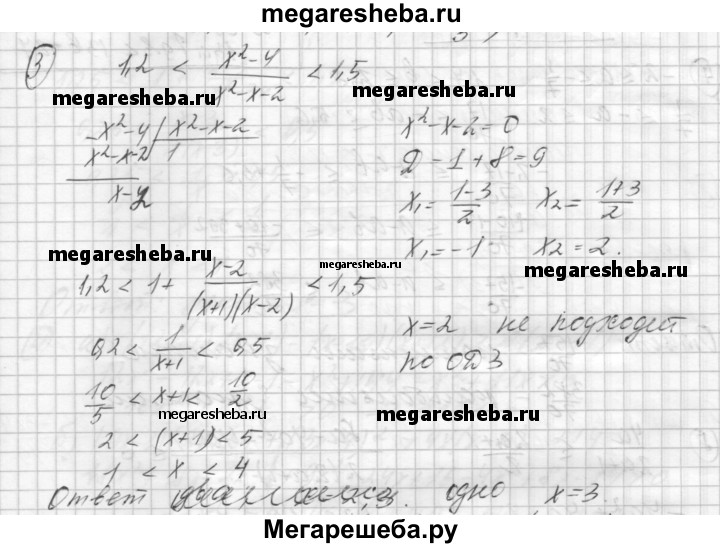 megaresheba.ru
3) 1,2 < (x²-4)/(x²-x-2) < 1,5
megaresheba.ru
megaresheba.ru
x²-4 | x²-x-2
x²-x-2 | 1
x-2
x²-x-2=0
D-1+8=9
x₁= (1-3)/2 x₂= (1+3)/2
x₁=-1 x₂=2.
megaresheba.ru
megaresheba.ru
megaresheba.ru
1,2 < 1+ (x-2)/((x+1)(x-2)) < 1,5
x=2 не подходит
по ОДЗ
0,2 < 1/(x+1) < 0,5
10/5 < x+1 < 10/2
megaresheba.ru
megaresheba.ru
2 < (x+1) < 5
1 < x < 4
Ответ одно x=3.
Мегарешеба.ру